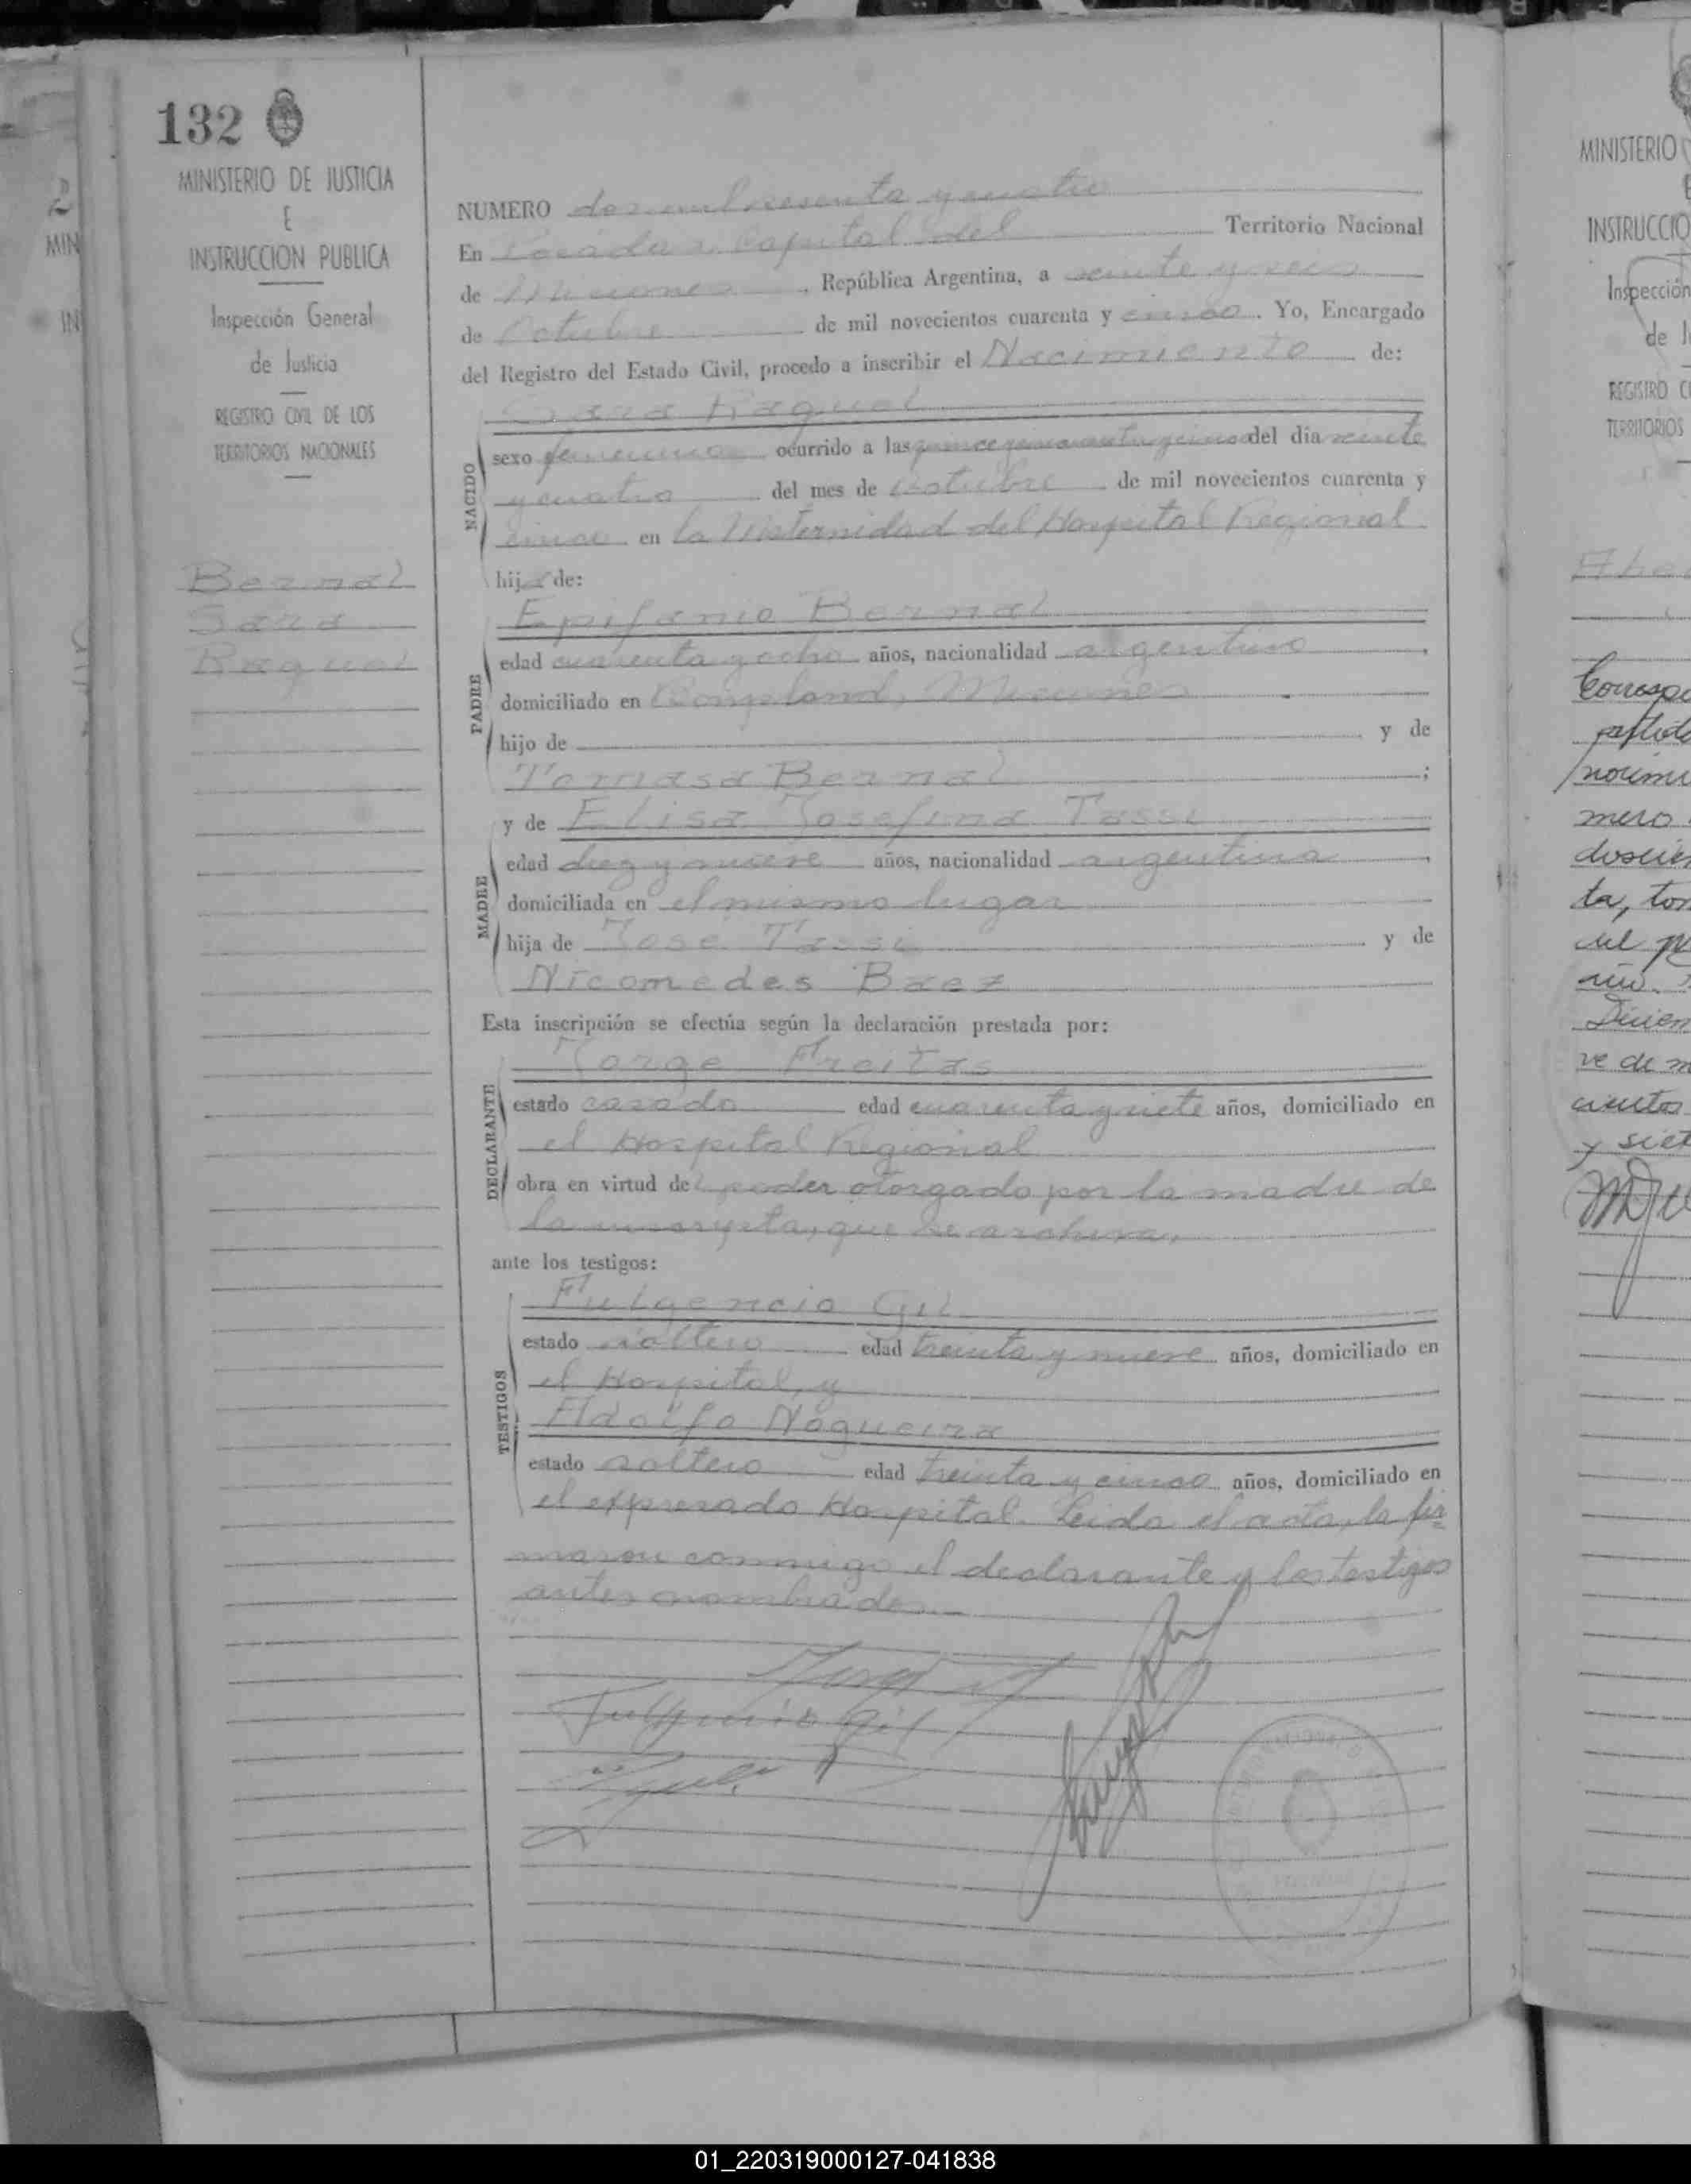 132
MINISTERIO DE JUSTICIA
E
INSTRUCCION PUBLICA
Inspección General
de Justicia
REGISTRO CIVIL DE LOS
TERRITORIOS NACIONALES
Bernal
Sara
Raquel
NUMERO dos mil sesenta y cuatro
En Posadas, Capital del Territorio Nacional
de Misiones, República Argentina, a veinte y seis
de Octubre de mil novecientos cuarenta y cinco. Yo, Encargado
del Registro del Estado Civil, procedo a inscribir el Nacimiento de:
Sara Raquel
NACIDO
sexo femenino ocurrido a las quince y cuarenta y cinco del dia veinte
y cuatro del mes de Octubre de mil novecientos cuarenta y
cinco en la Maternidad del Hospital Regional
hija de:
PADRE
Epifanio Bernal
edad cuarenta y ocho años, nacionalidad argentino,
domiciliado en Bompland, Misiones
hijo de y de
Tomasa Bernal;
y de Elisa Josefina Tassi
MADRE
edad diez y nueve años, nacionalidad argentina,
domiciliada en el mismo lugar
hija de José Tassi y de
Nicomedes Baez
Esta inscripción se efectúa según la declaración prestada por:
DECLARANTE
Jorge Freitas
estado casado edad cuarenta y siete años, domiciliado en
el Hospital Regional
obra en virtud del poder otorgado por la madre de
la inscripta, que se archiva,
ante los testigos:
TESTIGOS
Fulgencio Gil
estado soltero edad treinta y nueve años, domiciliado en
el Hospital, y
Adolfo Nogueira
estado soltero edad treinta y cinco años, domiciliado en
el expresado Hospital. Leida el acta, la fir-
maron conmigo el declarante y los testigos
antes nombrados.
Fulgencio Gil
MINISTERIO
INSTRUCCIO
Inspección
de J
REGISTRO CI
TERRITORIOS
mero
ta, tom
Dicien
ve de m
cientos
y siet
01_220319000127-041838